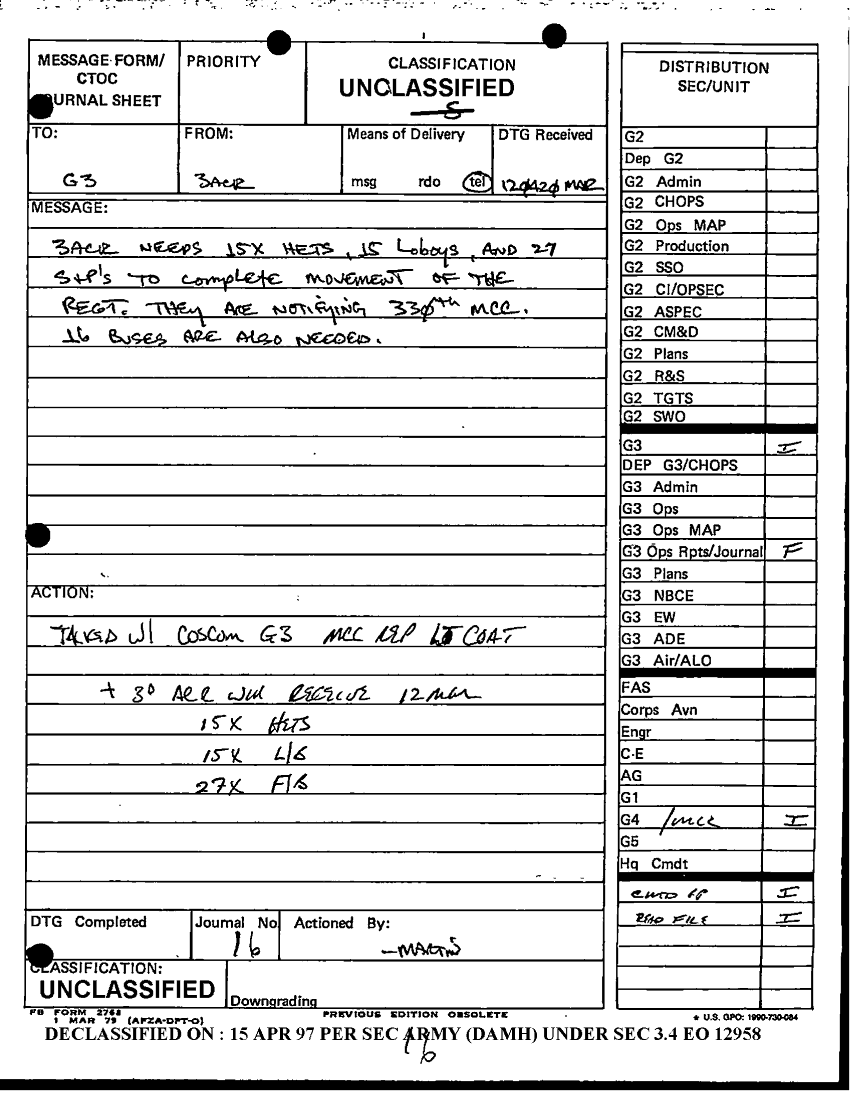 MESSAGE FORM/
CTOC
JOURNAL SHEET
PRIORITY
CLASSIFICATION
UNCLASSIFIED
S
TO:
G3
FROM:
3ACR
Means of Delivery
msg rdo tel
DTG Received
120420 MAR
MESSAGE:
3ACR NEEDS 15X HETS, 15 Loboys, AND 27
S+P's TO complete MOVEMENT OF THE
REGT. THEY ARE NOTIFYING 330th MCC.
16 BUSES ARE ALSO NEEDED.
ACTION:
TALKED W/ COSCOM G3 MCC REP LT COAT
+ 3D ACR WILL RECEIVE 12 MAR
15X HETS
15X L/B
27X F/B
DTG Completed
Journal No
16
Actioned By:
-MARTIN
CLASSIFICATION:
UNCLASSIFIED
Downgrading
DISTRIBUTION
SEC/UNIT
G2
Dep G2
G2 Admin
G2 CHOPS
G2 Ops MAP
G2 Production
G2 SSO
G2 CI/OPSEC
G2 ASPEC
G2 CM&D
G2 Plans
G2 R&S
G2 TGTS
G2 SWO
G3 I
DEP G3/CHOPS
G3 Admin
G3 Ops
G3 Ops MAP
G3 Ops Rpts/Journal F
G3 Plans
G3 NBCE
G3 EW
G3 ADE
G3 Air/ALO
FAS
Corps Avn
Engr
C-E
AG
G1
G4 /MCC I
G5
Hq Cmdt
CMD GP I
READ FILE I
FB FORM 2768
1 MAR 79 (AFZA-DPT-O)
PREVIOUS EDITION OBSOLETE
* U.S. GPO: 1990-730-084
DECLASSIFIED ON : 15 APR 97 PER SEC ARMY (DAMH) UNDER SEC 3.4 EO 12958
16